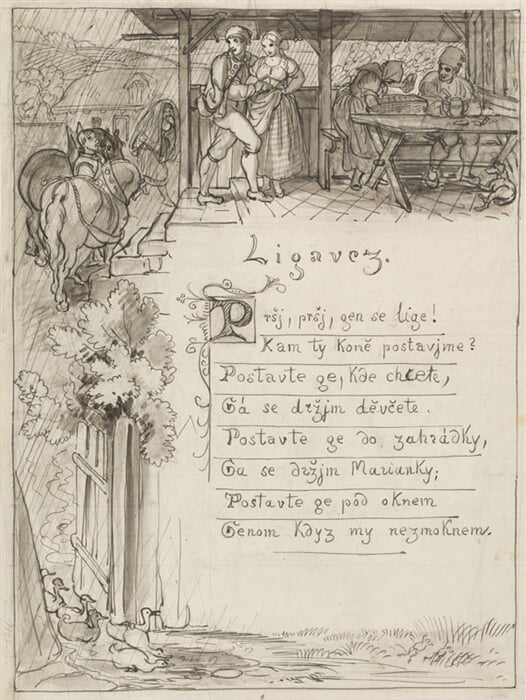 Ligavcz.
Pršj, pršj, gen se lige!
Kam ty koně postavjme?
Postavte ge, kde chcete,
Gá se držjm děvčete.
Postavte ge do zahrádky,
Ga se držjm Marianky;
Postavte ge pod oknem
Genom kdyz my nezmoknem.